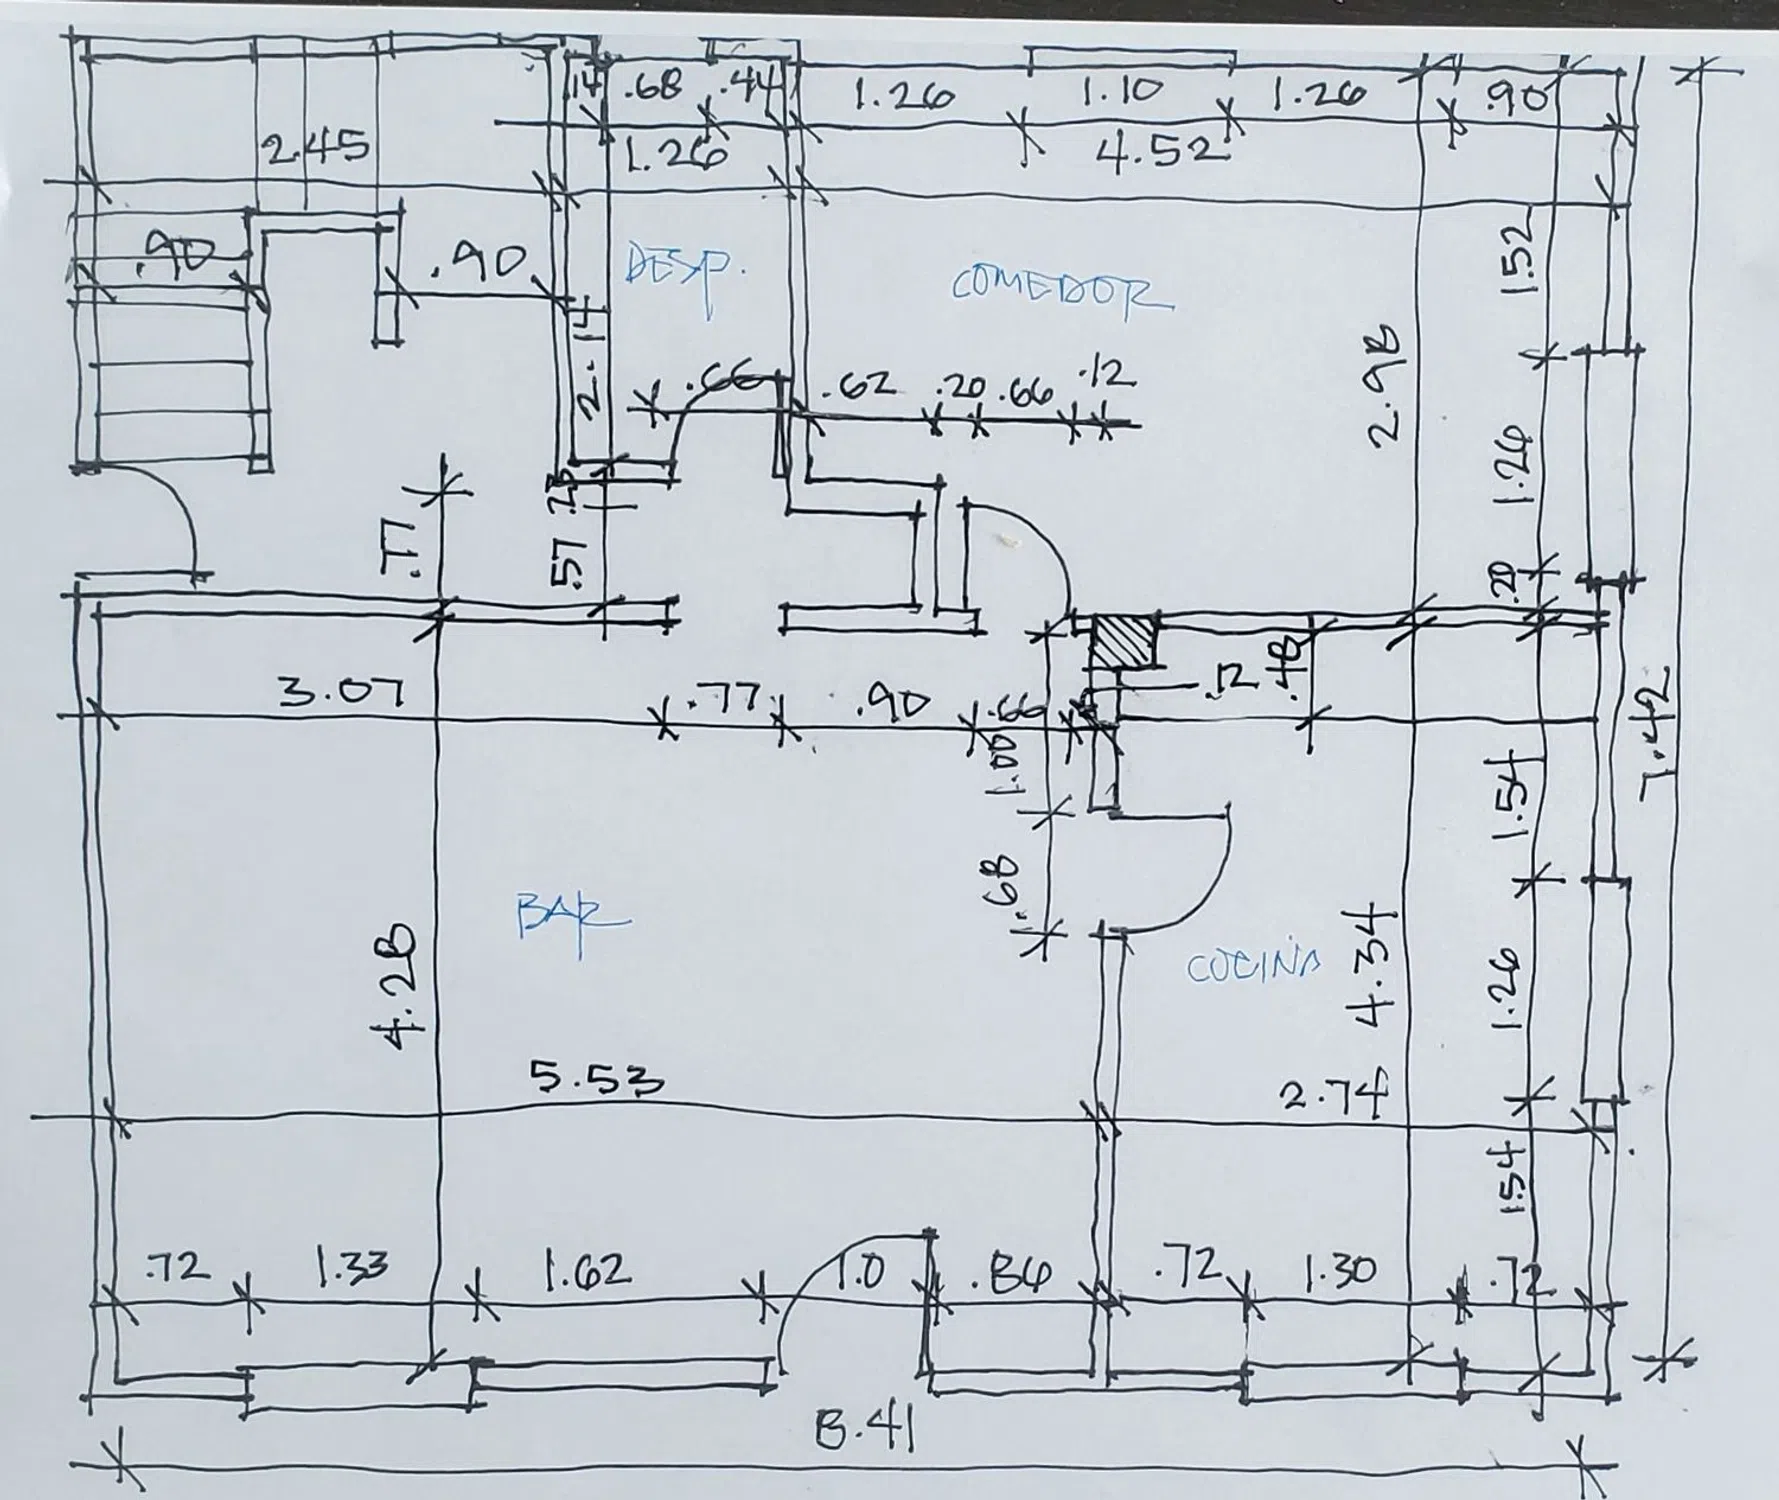 .14 .68 .44 1.26 1.10 1.26 .90
2.45 1.26 4.52
.90 .90 DESP. COMEDOR 1.52
2.14 .66 .62 .20 .66 .12 2.98 1.26
.77 .57 .20
3.07 .77 .90 .66 .12 .48 7.42
1.00 1.54
.68
BAR
4.28 COCINA 4.34 1.26
5.53 2.74
1.54
.72 1.33 1.62 1.0 .86 .72 1.30 .72
8.41